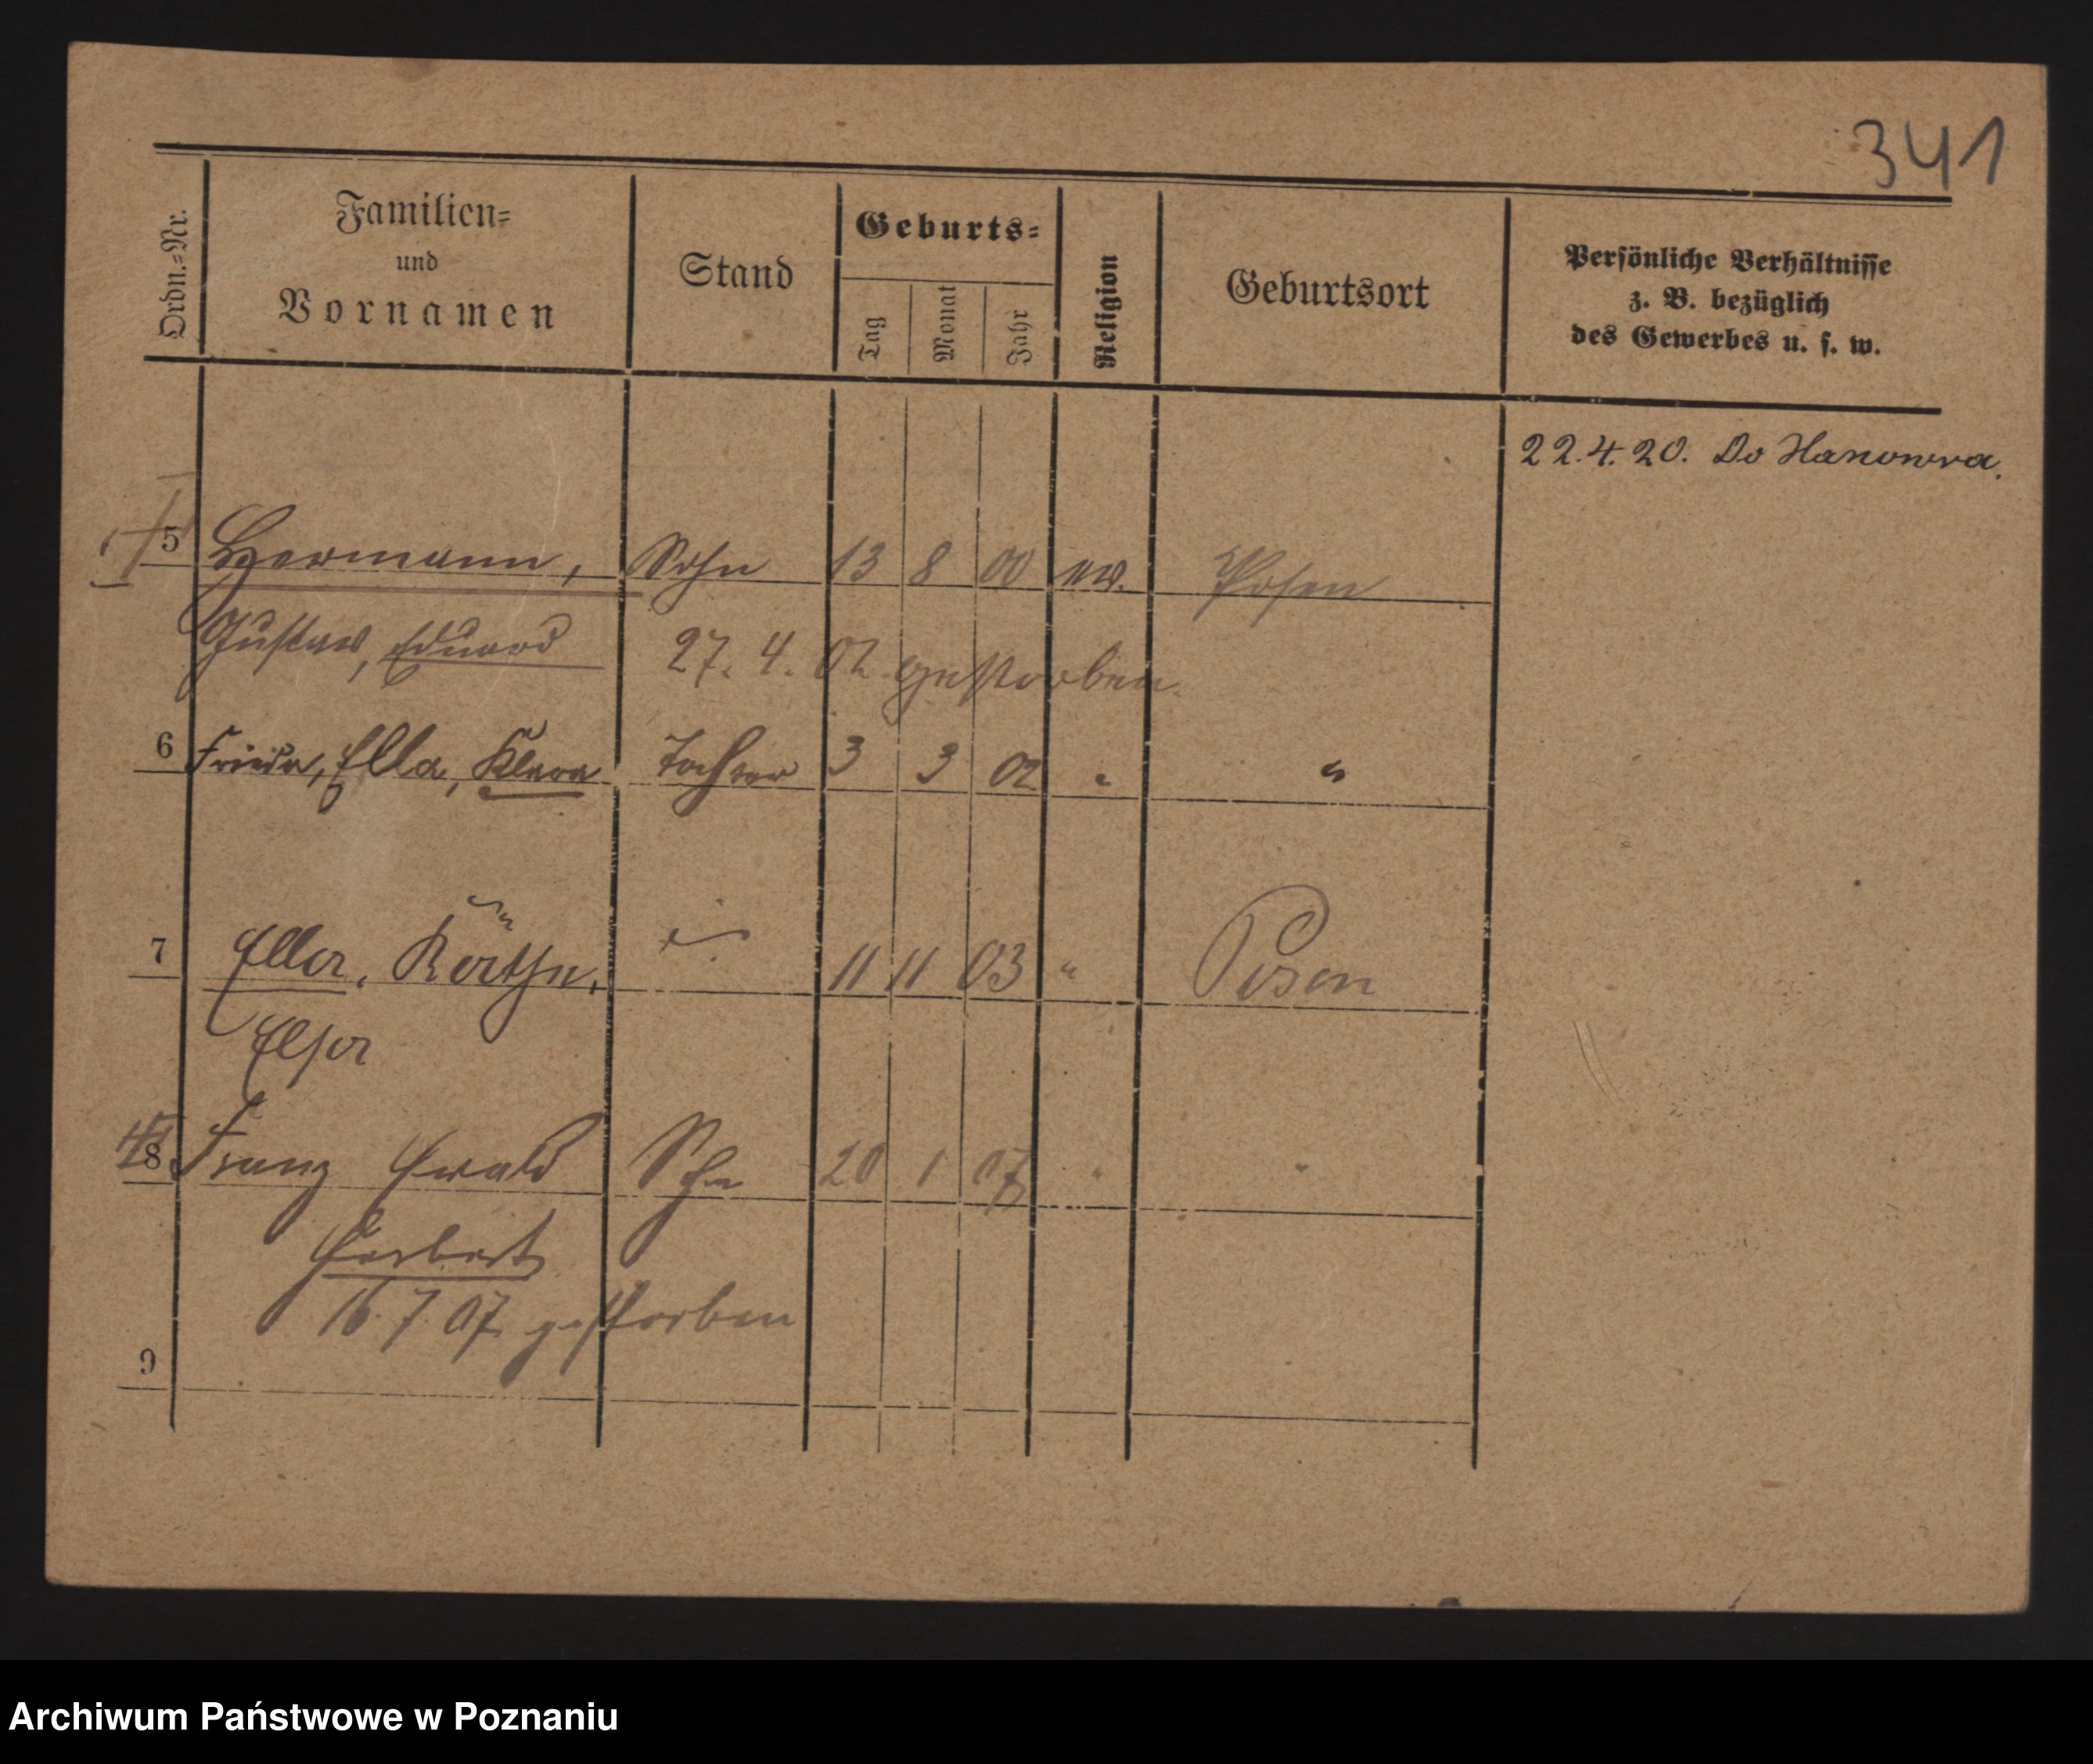 341
Ordn.-Nr.
Familien-
und
Vornamen
Stand
Geburts-
Tag
Monat
Jahr
Religion
Geburtsort
Persönliche Verhältnisse
z. B. bezüglich
des Gewerbes u. s. w.
22.4.20. Do Hanowra.
5 Hermann, Sohn 13 8 00 ev. Posen
Gustav, Eduard 27. 4. 02. gestorben.
6 Frieda, Ella, Klara Tochter 3 3 02 " "
7 Ella, Käthe, 11 11 03 " Posen
Elsa
8 Franz Ewald Sohn 20 1 07 " "
Herbert
16. 7. 07. gestorben
9
Archiwum Państwowe w Poznaniu